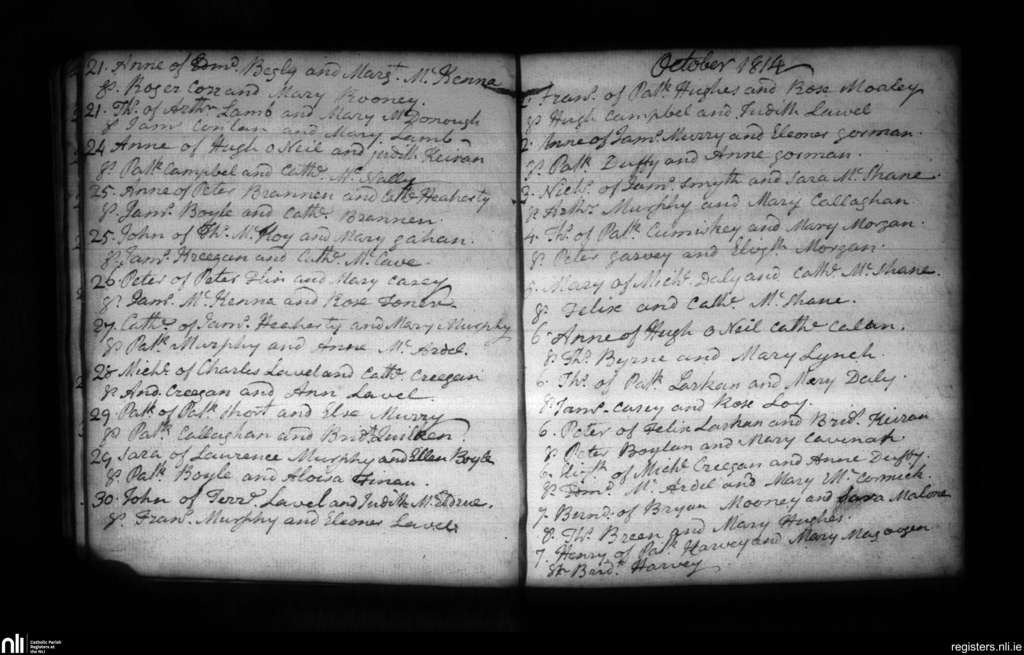 21. Anne of Edmd. Begly and Margt. Mc Kenna
gp. Roger Corr and Mary Rooney.
21. Ths. of Arthr Lamb and Mary Mc Donough
gp Jams Conlan and Mary Lamb
24 Anne of Hugh O Neil and Judith Keiran
gp. Patk Campbel and Cathe Mc Nally
25. Anne of Peter Brannen and Cathe Heaherty
gp. Jams. Boyle and Cathe. Brannen.
25. John of Ths. Mc Koy and Mary gahan.
gp. Jams. Kreegan and Cathe. Mc Cave.
26 Peter of Peter and Mary Casey
gp. Jams. Mc Kenna and Rose Toner
27. Cathe. of Jams. Heaherty and Mary Murphy
gp Patk Murphy and Anne Mc Ardel.
28 Michl. of Charles Lavel and Cathe. Creegan
gp. And. Creegan and Ann Lavel
29. Patk. of Patk. Short and Else Murry
gp Patk. Callaghan and Bridt. Quilken.
29. Sara of Laurence Murphy and Ellen Boyle
gp. Patk. Boyle and Aloisa
30. John of Terre. Lavel and Judith Mc
gp. Frans. Murphy and Eleonor Lavel
October 1814
Frans. of Patk. Hughes and Rose Moaley
gp Hugh Campbel and Judith Lavel
2. Anne of Jams. Murry and Eleonor gorman.
gp. Patk Duffy and Anne gorman.
3. Nichs. of Jams. Smyth and Sara Mc Shane.
gp Arthr. Murphy and Mary Callaghan
4. Ths. of Patk. Cumiskey and Mary Morgan.
gp. Peter garvey and Elizth. Morgan.
Mary of Michl. Daly and Cathe. Mc Shane.
gp. Felix and Cathe Mc Shane.
6. Anne of Hugh O Neil Cathe Calan.
gp. Ths. Byrne and Mary Lynch.
6. Ths. of Patk. Larkan and Mary Daly.
gp. Jams. Casey and Rose Loy.
6. Peter of Felix Larkan and Bridt. Kieran
gp Peter Boylan and Mary Cavinah
6. Elizth. of Michl. Creegan and Anne Duffy.
gp. Edmd. Mc Ardel and Mary Mc Cormick.
7. Bernd. of Bryan Mooney and Sara Malone
gp. Ths. Breen and Mary Hughes.
7. Henry of Patk. Harvey and Mary Magogen
gp Bridt. Harvey
nli
Catholic Parish
Registers at
the NLI
registers.nli.ie